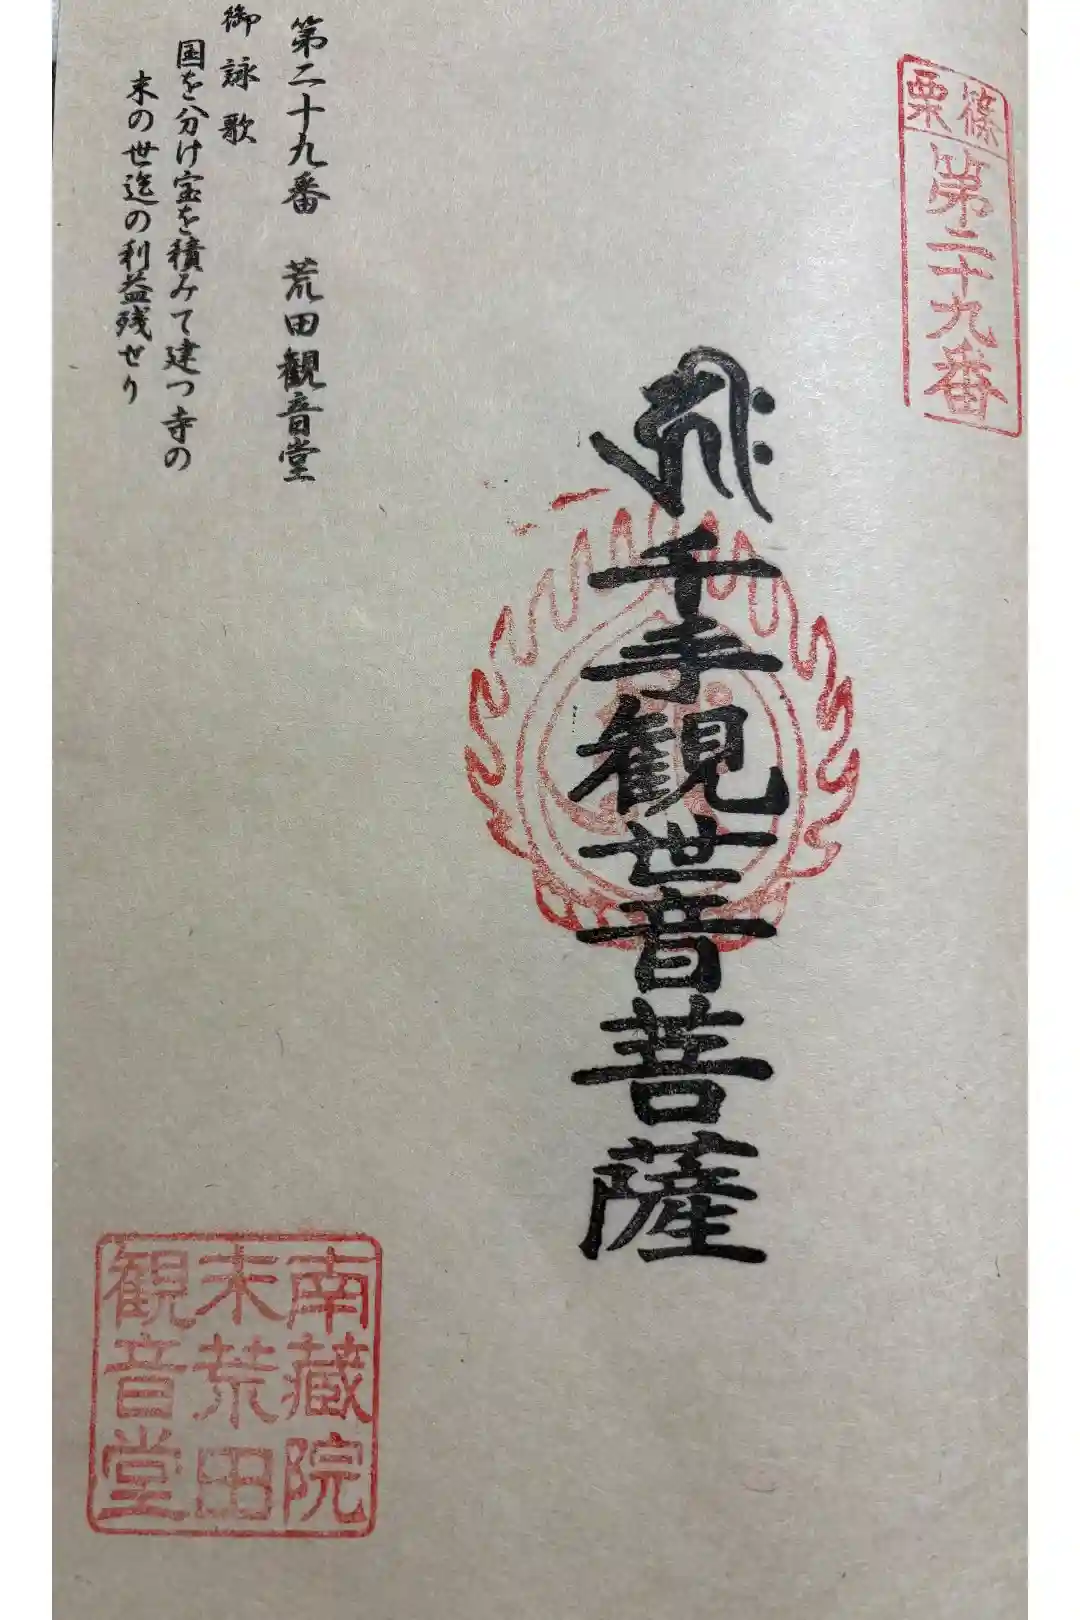 篠栗
第二十九番
𑖮𑖿𑖨𑖱𑖾
千手観世音菩薩
第二十九番 荒田観音堂
御詠歌
国を分け宝を積みて建つ寺の
末の世迄の利益残せり
南蔵院
末荒田
観音堂